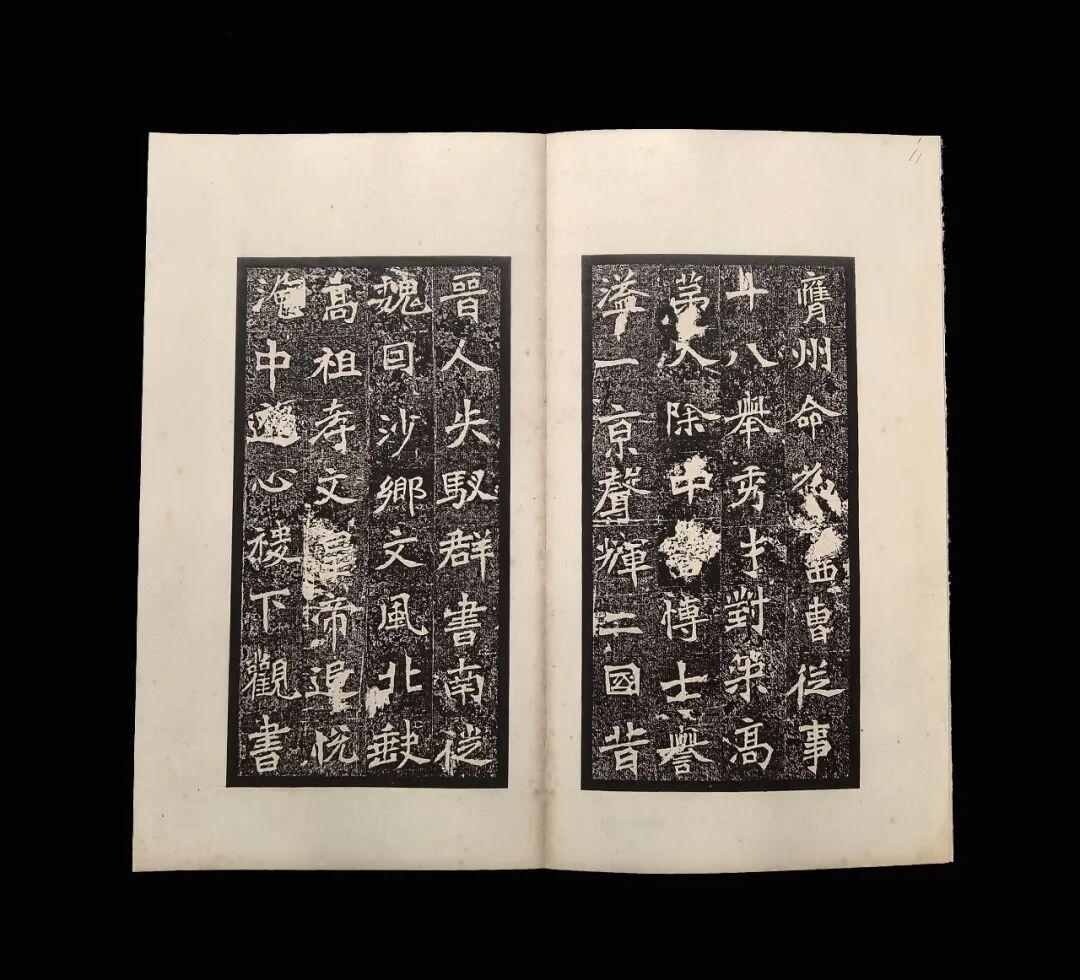 膺州命為西曹從事
十八舉秀才對策高
第入除中書博士譽
溢一京聲輝二國昔
晉人失馭群書南徙
魏因沙鄉文風北缺
高祖孝文皇帝追悅
淹中遊心稷下觀書